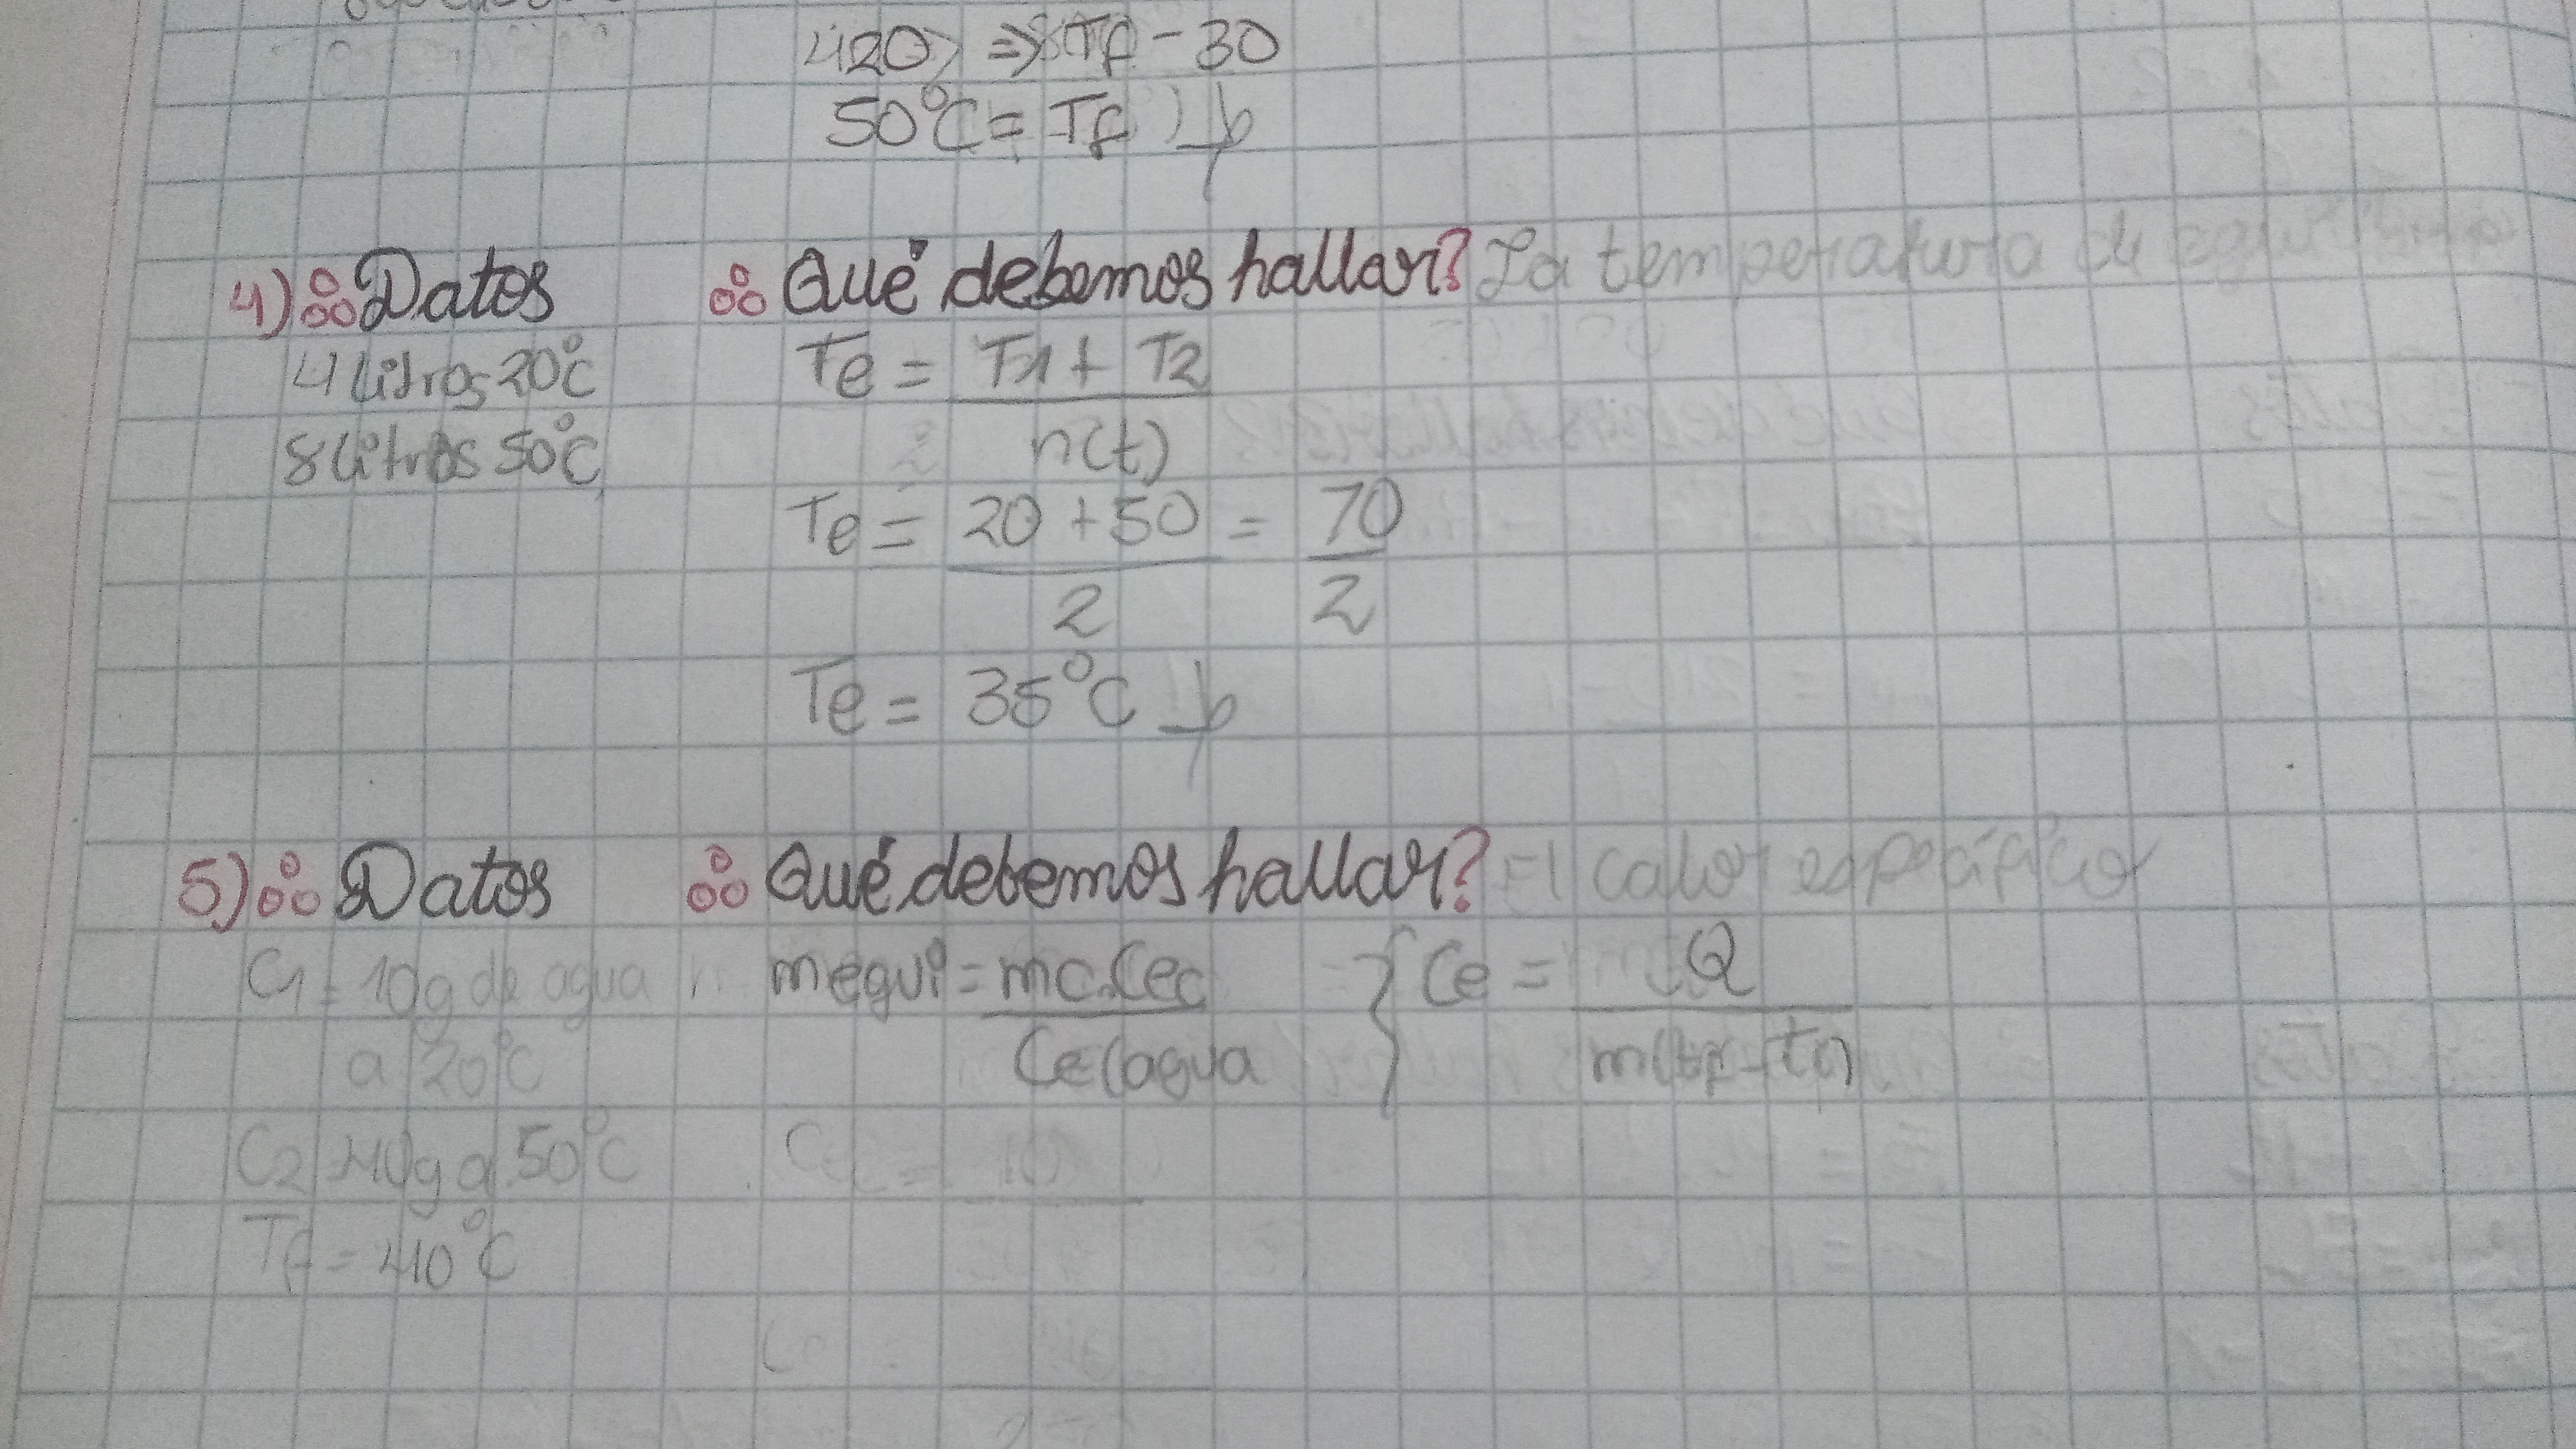 420 => Tf - 30
50°C = Tf
4) Datos
4 litros 20°C
8 litros 50°C
Qué debemos hallar? La temperatura de
Te = T1 + T2
n(t)
Te = 20 + 50 = 70
2 2
Te = 35°C
5) Datos
C1 = 10g de agua
a 20°C
C2 = 40g a 50°C
Tf = 40°C
Qué debemos hallar? El calor especifico
mequi = mc.Cec
Ce(agua
Ce = Q
m(tf-ti)